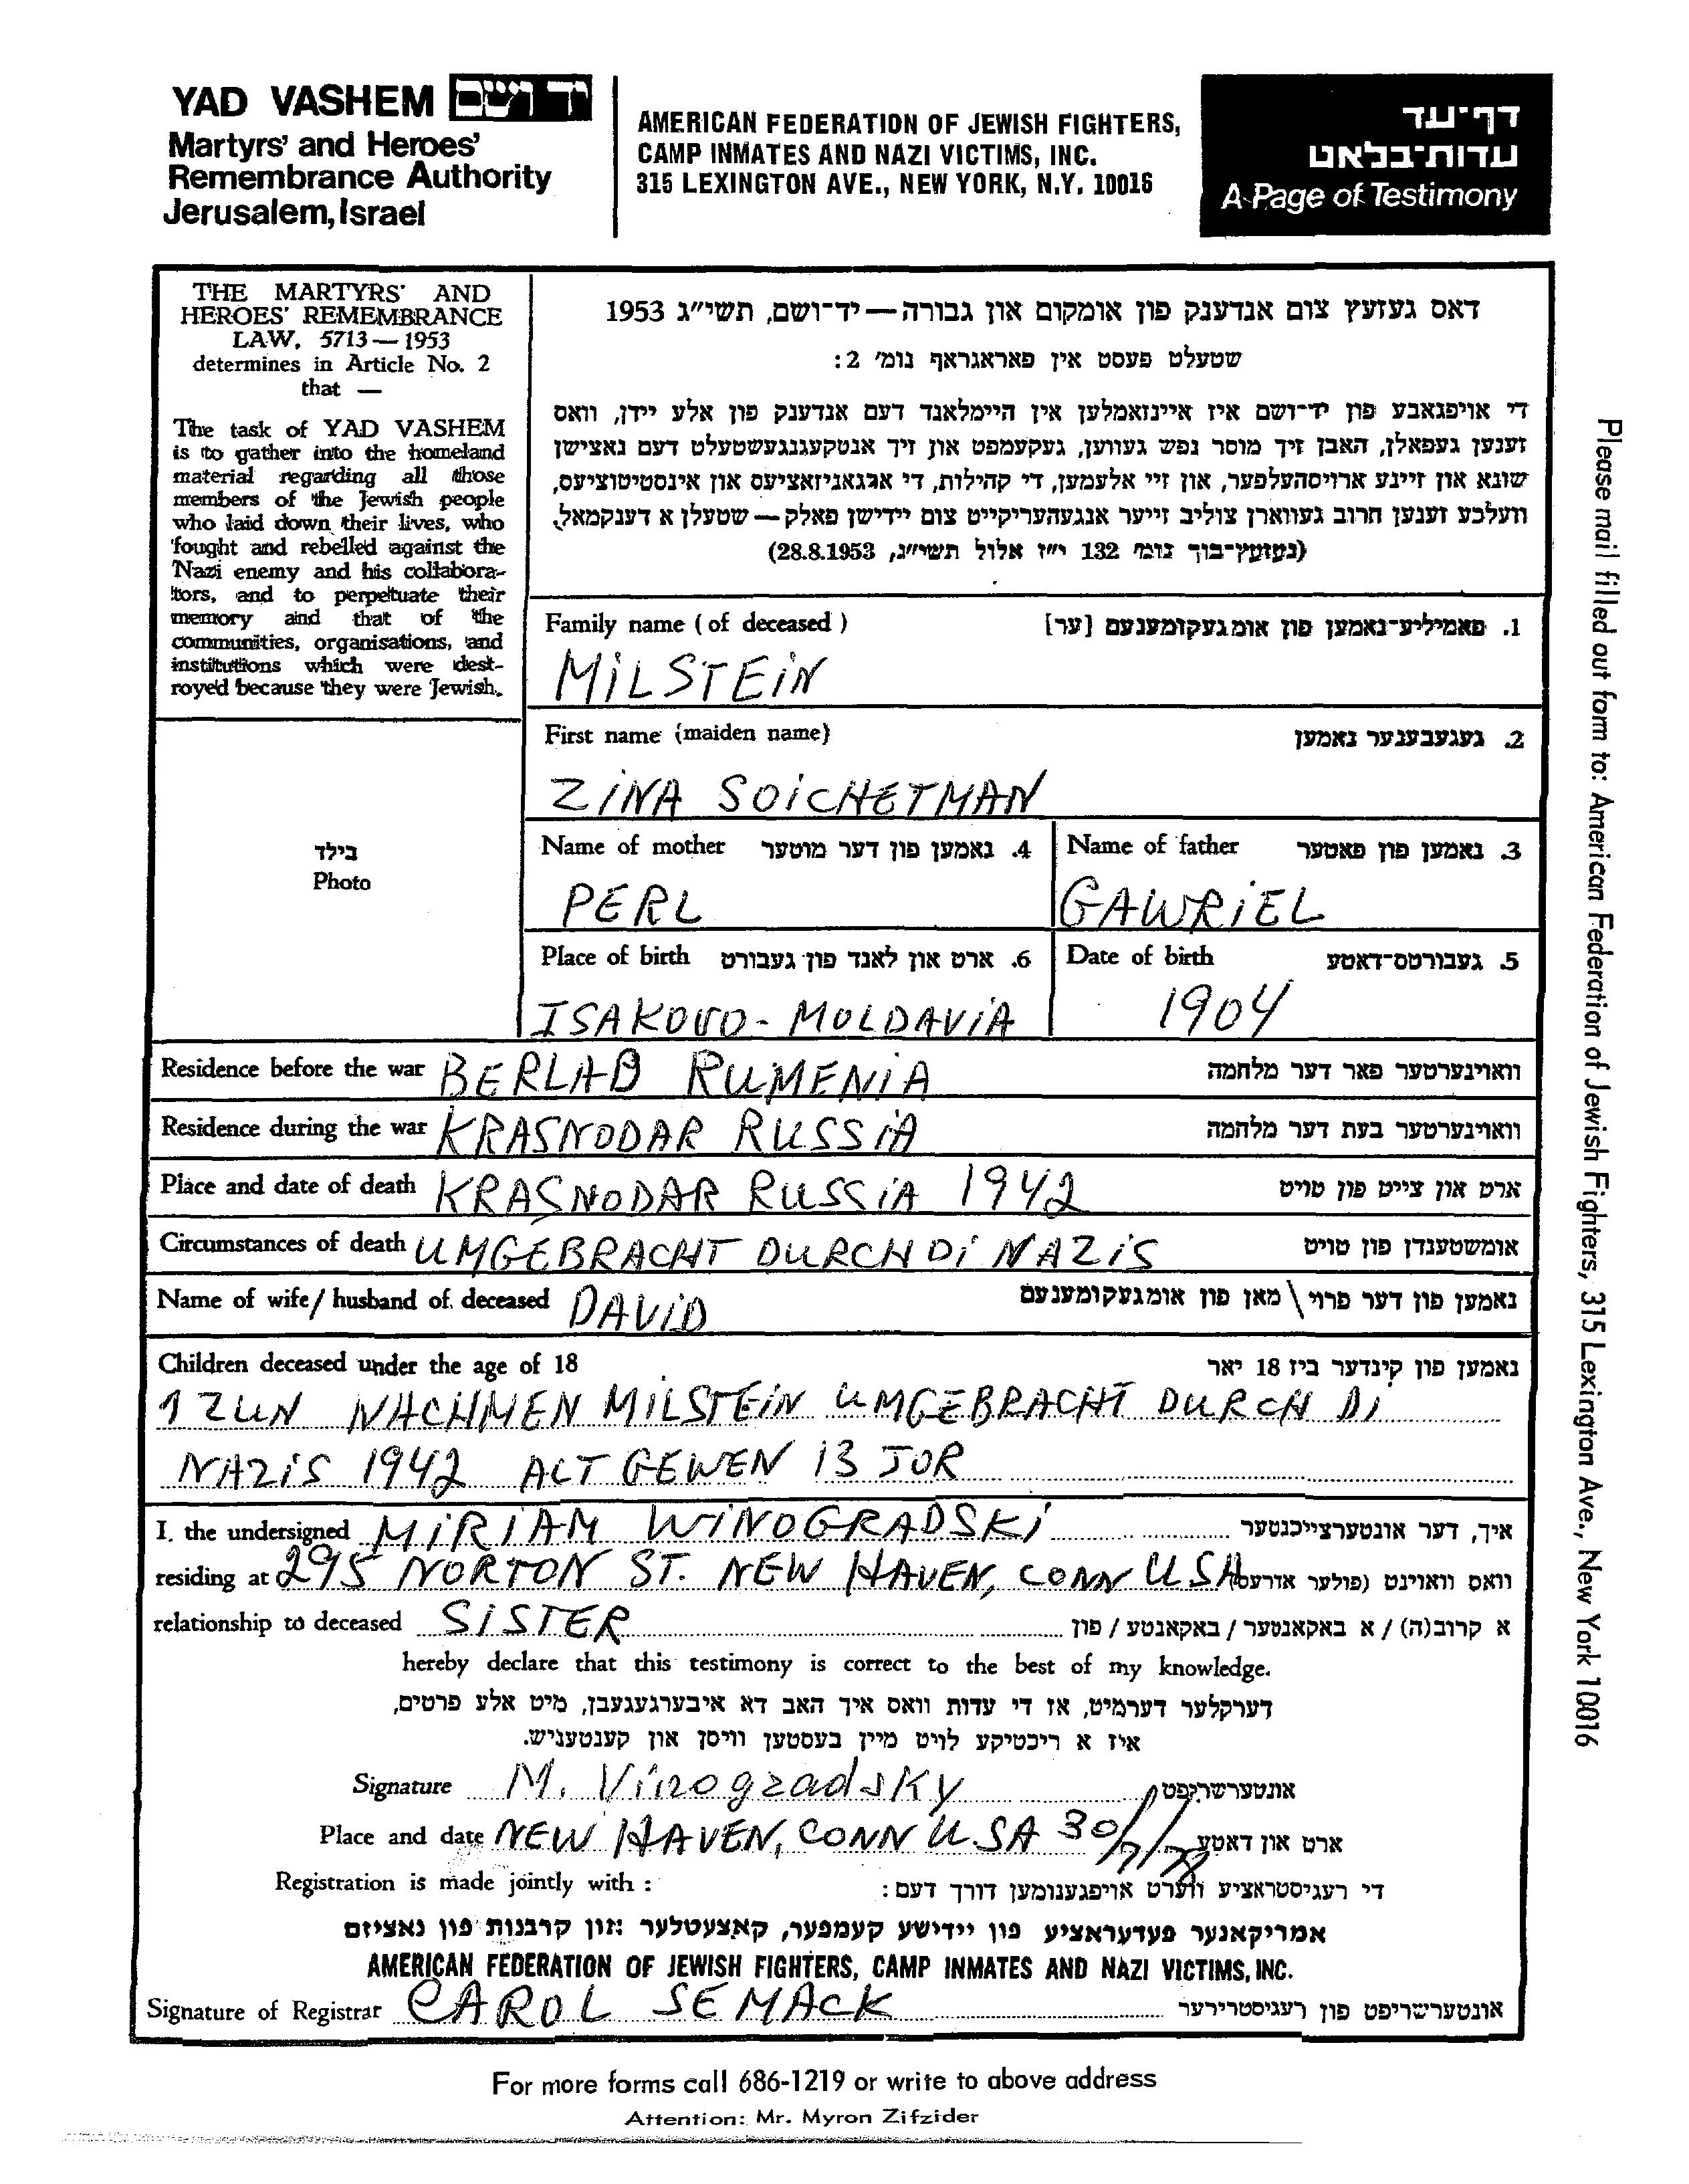 YAD VASHEM יד ושם
Martyrs' and Heroes'
Remembrance Authority
Jerusalem, Israel
AMERICAN FEDERATION OF JEWISH FIGHTERS,
CAMP INMATES AND NAZI VICTIMS, INC.
315 LEXINGTON AVE., NEW YORK, N.Y. 10016
דף־עד
עדות־בלאט
A Page of Testimony
THE MARTYRS' AND
HEROES' REMEMBRANCE
LAW, 5713—1953
determines in Article No. 2
that —
The task of YAD VASHEM
is to gather into the homeland
material regarding all those
members of the Jewish people
who laid down their lives, who
fought and rebelled against the
Nazi enemy and his collabora-
tors, and to perpetuate their
memory and that of the
communities, organisations, and
institutions which were dest-
royed because they were Jewish.
דאס געזעץ צום אנדענק פון אומקום און גבורה — יד־ושם, תשי״ג 1953
שטעלט פעסט אין פאראגראף נומ׳ 2:
די אויפגאבע פון יד־ושם איז איינזאמלען אין היימלאנד דעם אנדענק פון אלע יידן, וואס
זענען געפאלן, האבן זיך מוסר נפש געווען, געקעמפט און זיך אנטקעגנגעשטעלט דעם נאצישן
שונא און זיינע ארויסהעלפער, און זיי אלעמען, די קהילות, די ארגאניזאציעס און אינסטיטוציעס,
וועלכע זענען חרוב געווארן צוליב זייער אנגעהעריקייט צום יידישן פאלק — שטעלן א דענקמאל.
(געזעץ־בוך נומ׳ 132 י״ז אלול תשי״ג, 28.8.1953)
בילד
Photo
Family name (of deceased) 1. פאמיליע־נאמען פון אומגעקומענעם [ער]
MILSTEIN
First name (maiden name) 2. געגעבענער נאמען
ZINA SOICHETMAN
Name of mother 4. נאמען פון דער מוטער Name of father 3. נאמען פון פאטער
PERL GAWRIEL
Place of birth 6. ארט און לאנד פון געבורט Date of birth 5. געבורטס־דאטע
ISAKOVO - MOLDAVIA 1904
Residence before the war BERLAD RUMENIA וואוינערטער פאר דער מלחמה
Residence during the war KRASNODAR RUSSIA וואוינערטער בעת דער מלחמה
Place and date of death KRASNODAR RUSSIA 1942 ארט און צייט פון טויט
Circumstances of death UMGEBRACHT DURCH DI NAZIS אומשטענדן פון טויט
Name of wife/ husband of deceased DAVID נאמען פון דער פרוי \ מאן פון אומגעקומענעם
Children deceased under the age of 18 נאמען פון קינדער ביז 18 יאר
1 ZUN NACHMEN MILSTEIN UMGEBRACHT DURCH DI
NAZIS 1942 ALT GEWEN 13 JOR
I, the undersigned MIRIAM WINOGRADSKI איך, דער אונטערצייכנטער
residing at 295 NORTON ST. NEW HAVEN, CONN USA וואס וואוינט (פולער אדרעס)
relationship to deceased SISTER א קרוב(ה) / א באקאנטער / באקאנטע / פון
hereby declare that this testimony is correct to the best of my knowledge.
דערקלער דערמיט, אז די עדות וואס איך האב דא איבערגעגעבן, מיט אלע פרטים,
איז א ריכטיקע לויט מיין בעסטען וויסן און קענטעניש.
Signature M. Vinogradsky אונטערשריפט
Place and date NEW HAVEN, CONN U.SA 30/7/78 ארט און דאטע
Registration is made jointly with : די רעגיסטראציע ווערט אויפגענומען דורך דעם :
אמריקאנער פעדעראציע פון יידישע קעמפער, קאצעטלער און קרבנות פון נאציזם
AMERICAN FEDERATION OF JEWISH FIGHTERS, CAMP INMATES AND NAZI VICTIMS, INC.
Signature of Registrar CAROL SEMACK אונטערשריפט פון רעגיסטרירער
For more forms call 686-1219 or write to above address
Attention: Mr. Myron Zifzider
Please mail filled out form to: American Federation of Jewish Fighters, 315 Lexington Ave., New York 10016